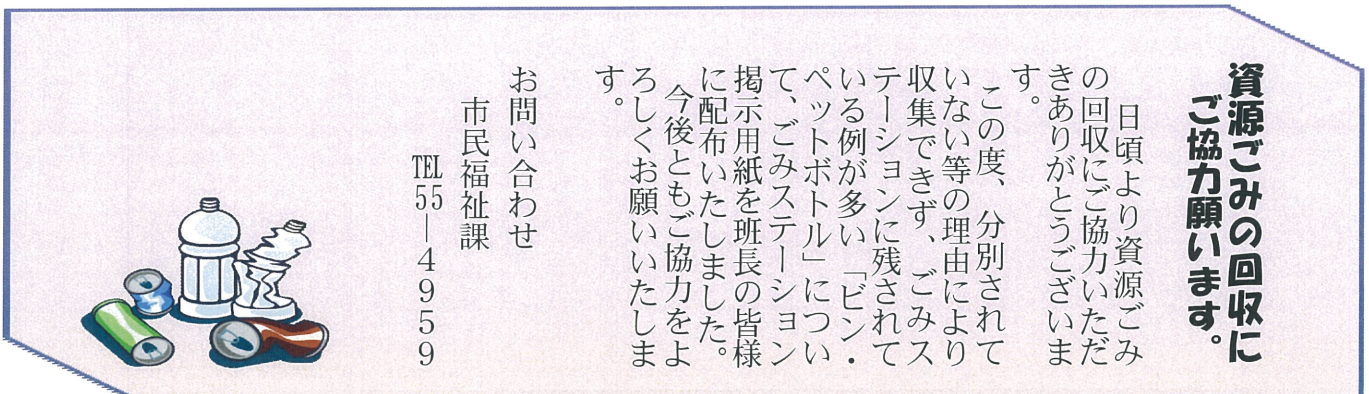 資源ごみの回収に
ご協力願います。
日頃より資源ごみ
の回収にご協力いただ
きありがとうございま
す。
この度、分別されて
いない等の理由により
収集できず、ごみス
テーションに残されて
いる例が多い「ビン・
ペットボトル」につい
て、ごみステーション
掲示用紙を班長の皆様
に配布いたしました。
今後ともご協力をよ
ろしくお願いいたしま
す。
お問い合わせ
市民福祉課
TEL55―4959